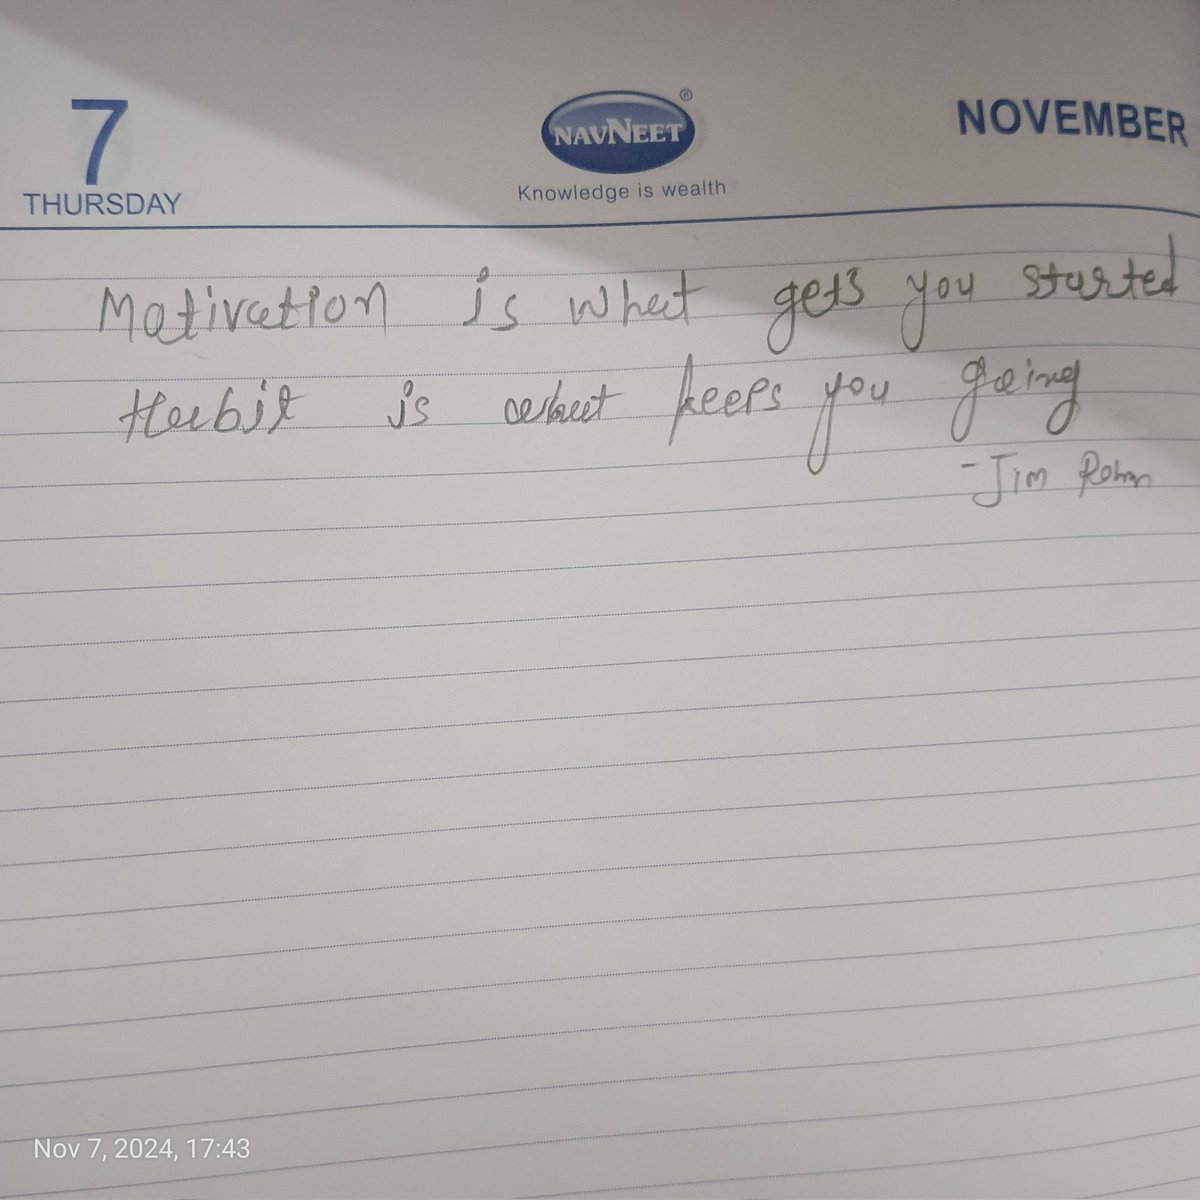 7
THURSDAY
NAVNEET®
Knowledge is wealth
NOVEMBER
Motivation is what gets you started
Habit is what keeps you going
- Jim Rohn
Nov 7, 2024, 17:43